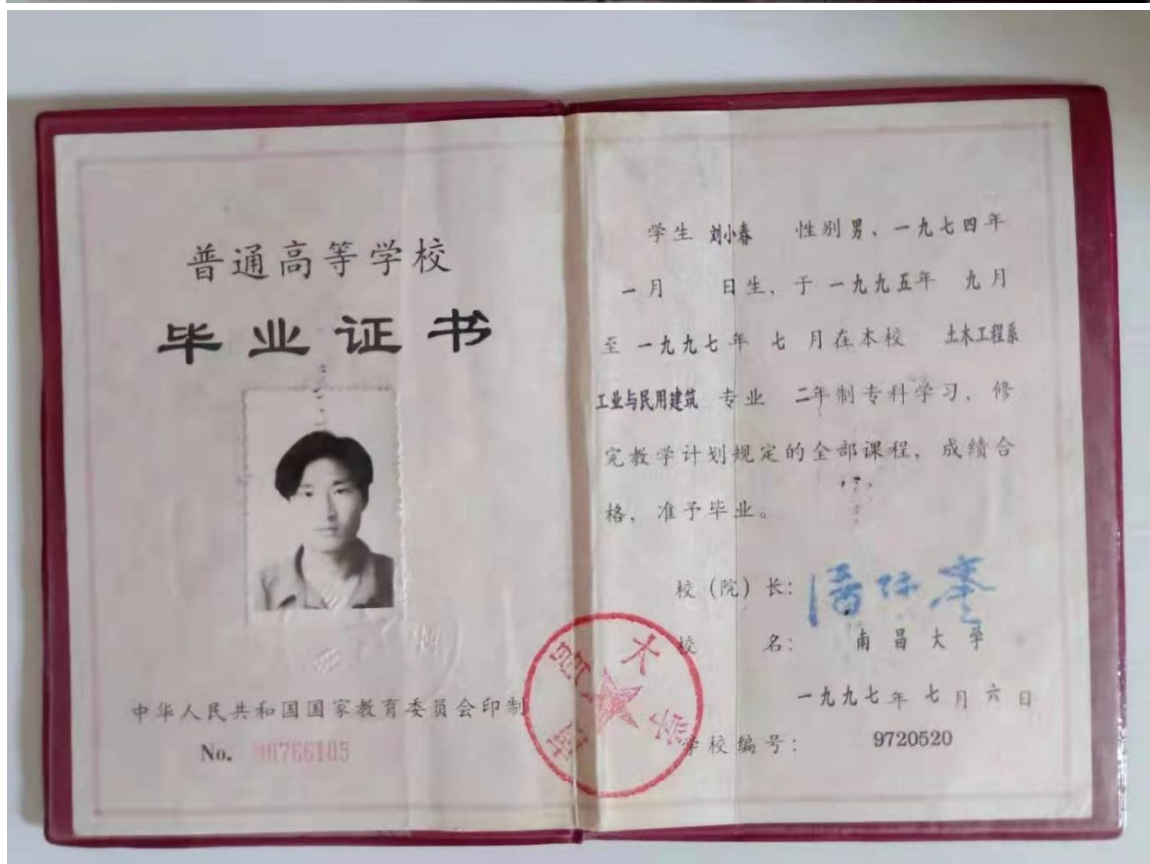 普通高等学校
毕业证书
中华人民共和国国家教育委员会印制
No. 90766105
学生 刘小春 性别 男，一九七四年
一月 日生，于 一九九五年 九月
至 一九九七年 七 月在本校 土木工程系
工业与民用建筑 专业 二年制专科学习，修
完教学计划规定的全部课程，成绩合
格，准予毕业。
校（院）长：潘际銮
校 名：南昌大学
一九九七年 七月 六日
学校编号： 9720520
南昌大学